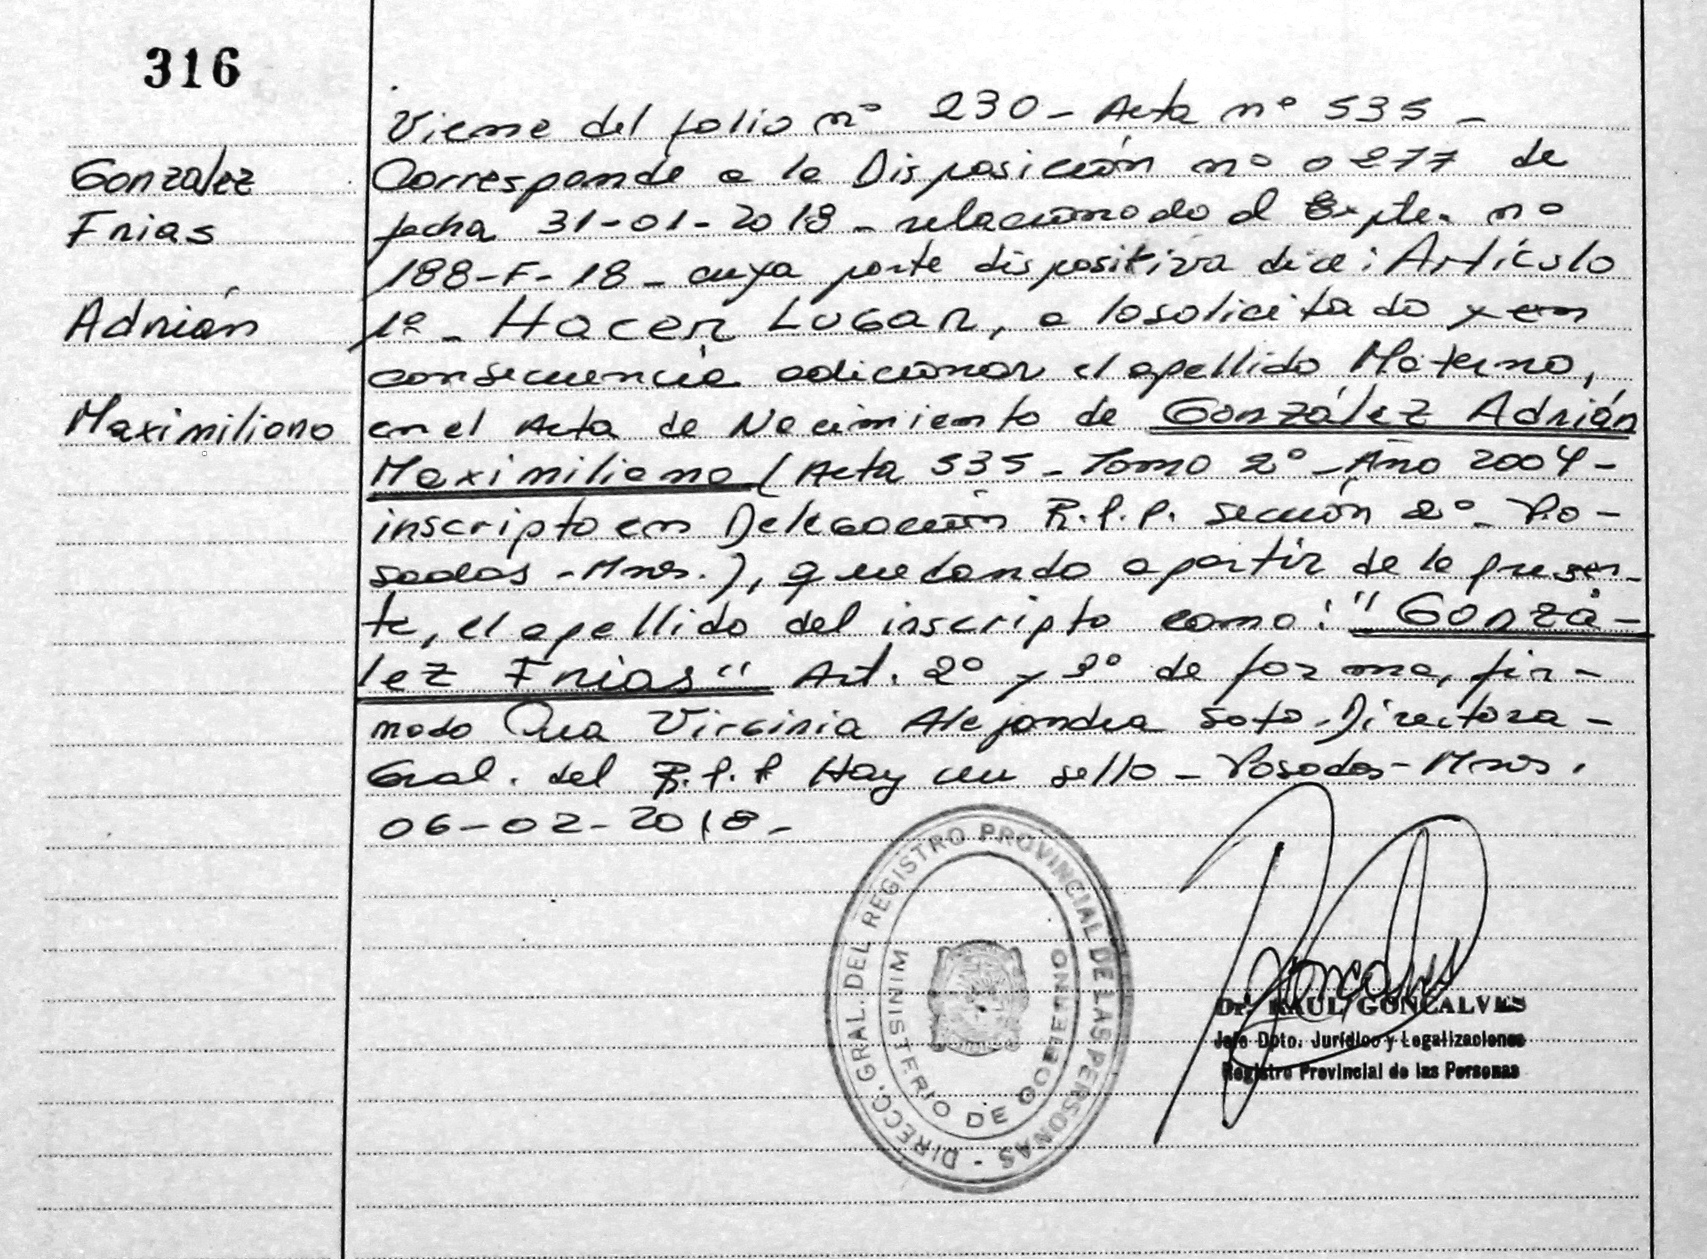 316
Gonzalez
Frias
Adrián
Maximiliano
Viene del folio nº 230 - Acta nº 535 -
Corresponde a la Disposición nº 0277 de
fecha 31-01-2018 - relacionado al Expte. nº
188-F-18 - cuya parte dispositiva dice: Artículo
1º - HACER LUGAR, a lo solicitado y en
consecuencia adicionar el apellido Materno,
en el Acta de Nacimiento de González Adrián
Maximiliano (Acta 535 - Tomo 2º - Año 2004 -
inscripto en Delegación R.P.P. sección 2º - Po-
sadas - Mnes.), quedando a partir de la presen-
te, el apellido del inscripto como: "Gonzá-
lez Frias" Art. 2º y 3º de forma, fir-
mado Dra Virginia Alejandra Soto - Directora -
Gral. del R.P.P Hay un sello - Posadas - Mnes.
06-02-2018 -
DIRECC. GRAL. DEL REGISTRO PROVINCIAL DE LAS PERSONAS -
MINISTERIO DE GOBIERNO
Dr. RAUL GONCALVES
Jefe Dpto. Jurídico y Legalizaciones
Registro Provincial de las Personas